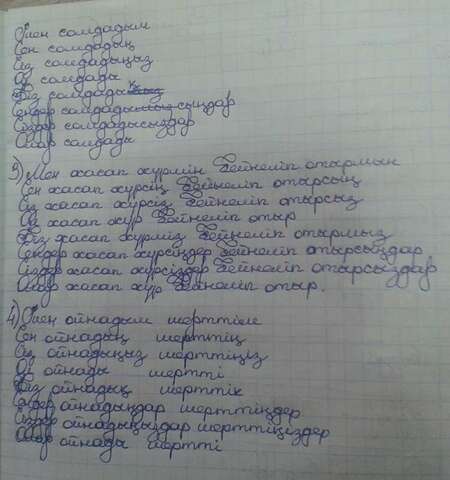 Мен сомдадым
Сен сомдадың
Сіз сомдадыңыз
Ол сомдады
Біз сомдадық
Сендер сомдадысыңдар
Сіздер сомдадысыздар
Олар сомдады
3) Мен жасап жүрмін бейнелеп отырмын
Сен жасап жүрсің бейнелеп отырсың
Сіз жасап жүрсіз бейнелеп отырсыз
Ол жасап жүр бейнелеп отыр
Біз жасап жүрміз бейнелеп отырмыз
Сендер жасап жүрсіңдер бейнелеп отырсыңдар
Сіздер жасап жүрсіздер бейнелеп отырсыздар
Олар жасап жүр бейнелеп отыр.
4) Мен ойнадым шерттім
Сен ойнадың шерттің
Сіз ойнадыңыз шерттіңіз
Ол ойнады шертті
Біз ойнадық шерттік
Сендер ойнадыңдар шерттіңдер
Сіздер ойнадыңыздар шерттіңіздер
Олар ойнады шертті